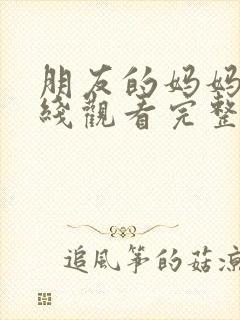 朋友的妈妈
綫觀看完整
追風筝的菇凉